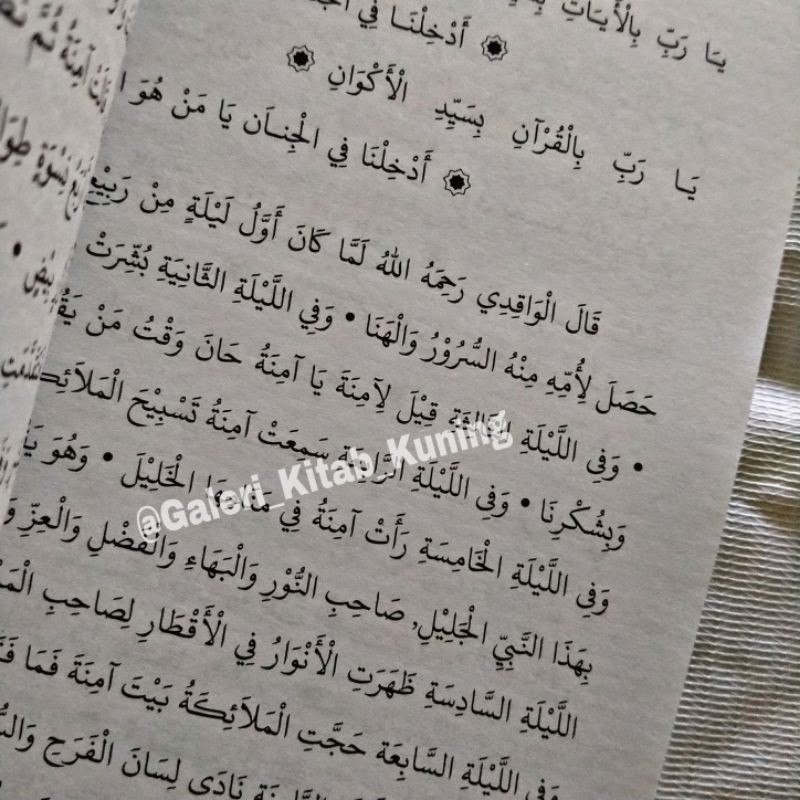 يَا رَبِّ بِالْأَيَاتِ
أَدْخِلْنَا فِي
يَا رَبِّ بِالْقُرْآنِ بِسَيِّدِ الْأَكْوَانِ
أَدْخِلْنَا فِي الْجِنَان يَا مَنْ هُوَ
قَالَ الْوَاقِدِي رَحِمَهُ اللهُ لَمَّا كَانَ أَوَّلُ لَيْلَةٍ مِنْ رَبِيْعِ
حَصَلَ لِأُمِّهِ مِنْهُ السُّرُوْرُ وَالْهَنَا • وَفِي اللَّيْلَةِ الثَّانِيَةِ بُشِّرَتْ
• وَفِي اللَّيْلَةِ الثَّالِثَةِ قِيْلَ لِآمِنَةَ يَا آمِنَةُ حَانَ وَقْتُ مَنْ
وَبِشُكْرِنَا • وَفِي اللَّيْلَةِ الرَّابِعَةِ سَمِعَتْ آمِنَةُ تَسْبِيْحَ
وَفِي اللَّيْلَةِ الْخَامِسَةِ رَأَتْ آمِنَةُ فِي مَنَامِهَا الْخَلِيْلَ • وَهُوَ
بِهَذَا النَّبِيِّ الْجَلِيْلِ, صَاحِبِ النُّوْرِ وَالْبَهَاءِ وَالْفَضْلِ وَالْعِزِّ
اللَّيْلَةِ السَّادِسَةِ ظَهَرَتِ الْأَنْوَارُ فِي الْأَقْطَارِ لِصَاحِبِ
وَفِي اللَّيْلَةِ السَّابِعَة حَجَّتِ الْمَلَائِكَةُ بَيْتَ آمِنَةَ فَمَا
نَادَى لِسَانَ الْفَرَجِ
@Galeri_Kitab_Kuning